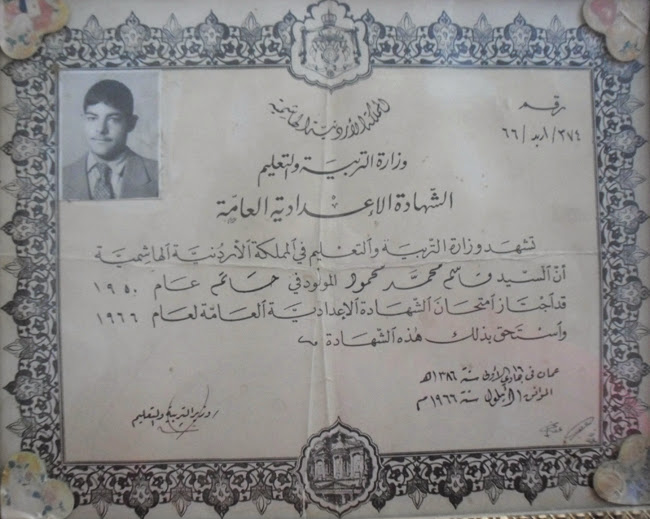 المملكة الأردنية الهاشمية
رقم
٢٧٤/اربد/٦٦
وزارة التربية والتعليم
الشهادة الإعدادية العامة
تشهد وزارة التربية والتعليم في المملكة الأردنية الهاشمية
أن السيد قاسم محمد محمود المولود في حاتم عام ١٩٥٠
قد اجتاز امتحان الشهادة الإعدادية العامة لعام ١٩٦٦
واستحق بذلك هذه الشهادة
عمان في جمادي الأولى سنة ١٣٨٦ هـ
الموافق ١ أيلول سنة ١٩٦٦ م
وزير التربية والتعليم